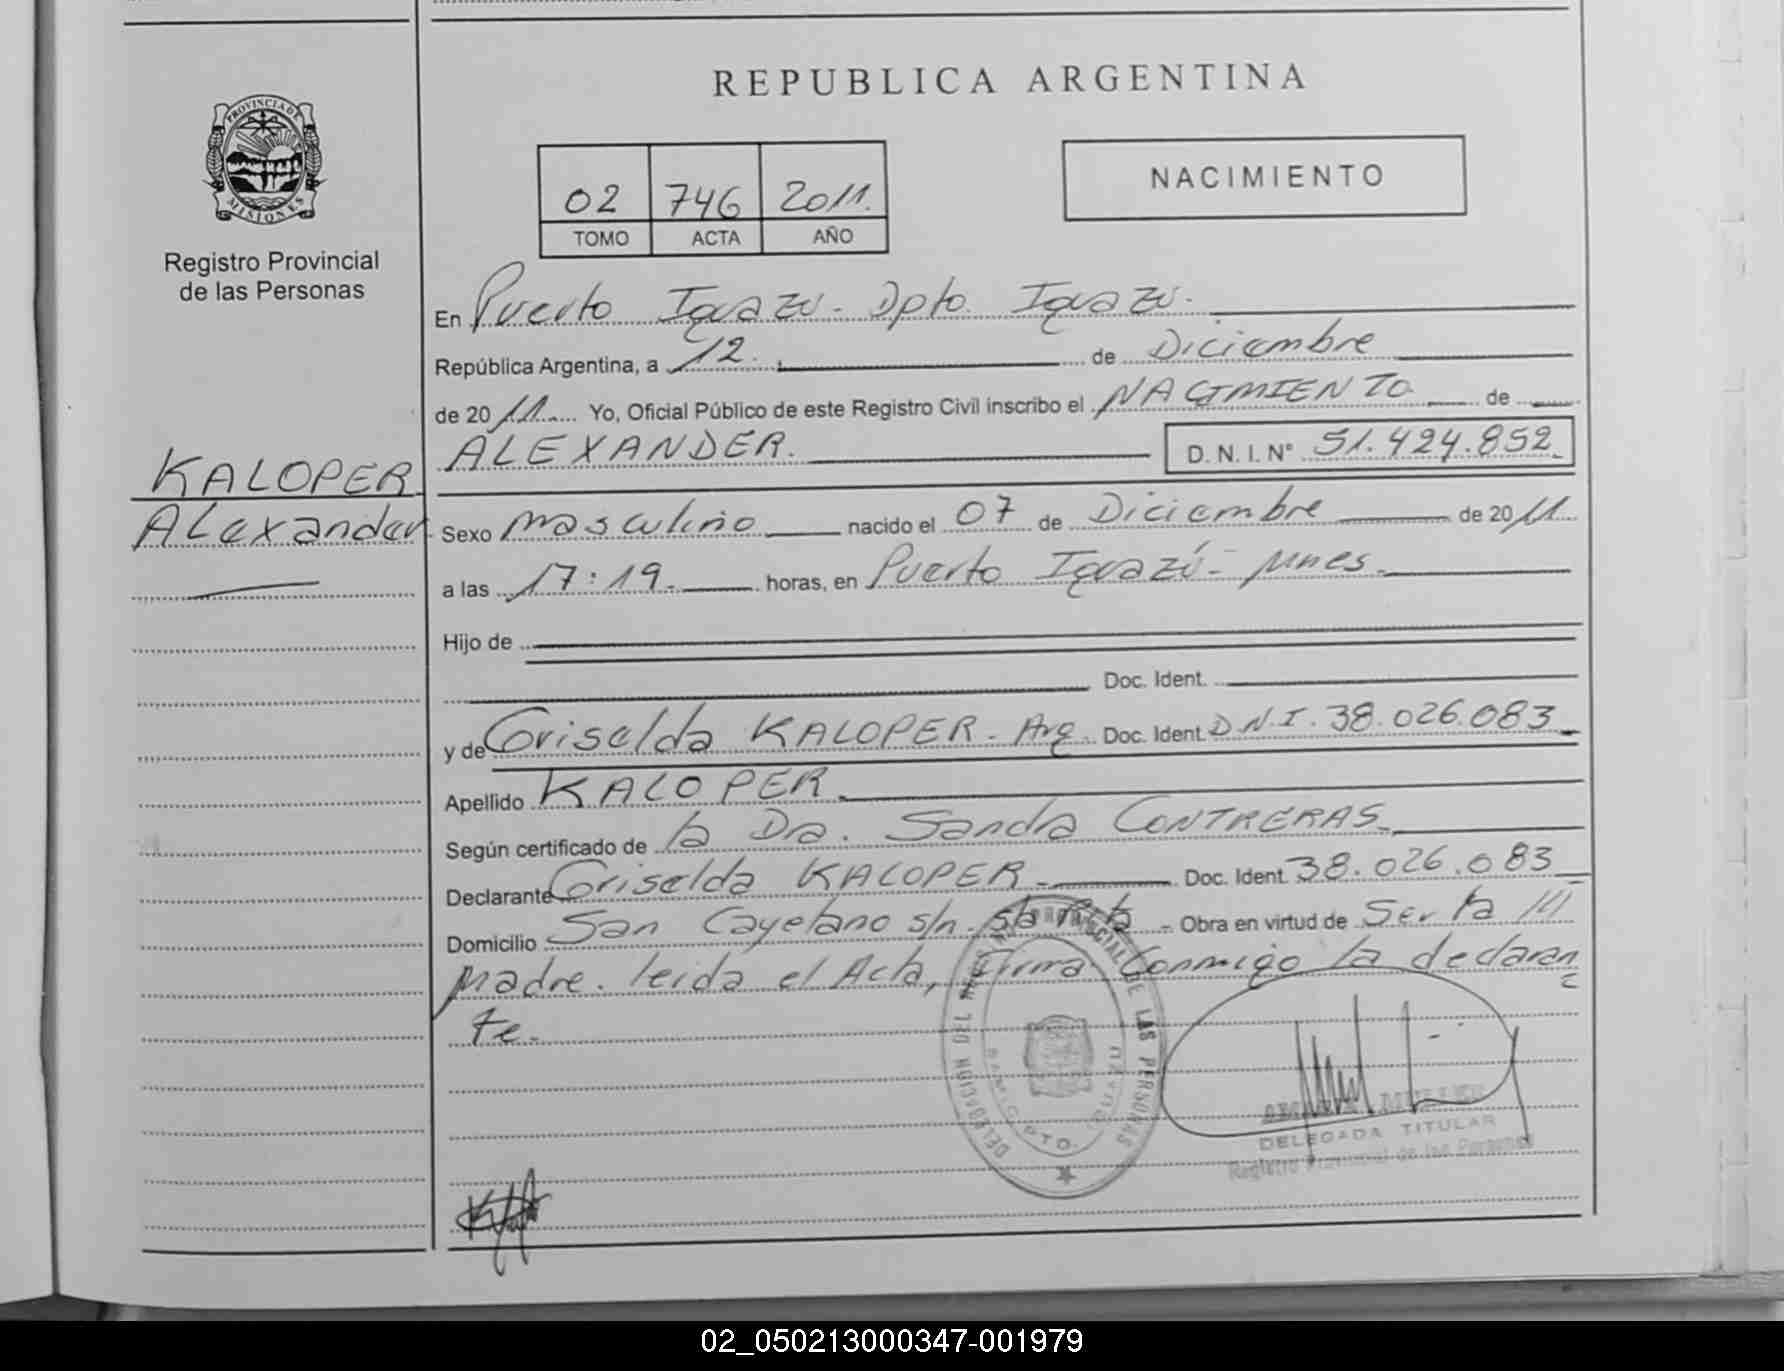 REPUBLICA ARGENTINA
PROVINCIA DE
MISIONES
Registro Provincial
de las Personas
02 746 2011.
TOMO ACTA AÑO
NACIMIENTO
En Puerto Iguazu - Dpto. Iguazu.
República Argentina, a 12. de Diciembre
de 20 11 Yo, Oficial Público de este Registro Civil inscribo el NACIMIENTO de
ALEXANDER. D. N. I. Nº 51.424.852
KALOPER
Alexander
Sexo masculino nacido el 07 de Diciembre de 20 11
a las 17:19. horas, en Puerto Iguazú - Mnes.
Hijo de
Doc. Ident.
y de Griselda KALOPER - Arg. Doc. Ident. D.N.I. 38.026.083
Apellido KALOPER
Según certificado de la Dra. Sandra CONTRERAS
Declarante Griselda KALOPER - Doc. Ident. 38.026.083
Domicilio San Cayetano s/n. - Obra en virtud de Ser la
Madre. leida el Acta, firma Conmigo la declaran
te.
PROVINCIAL DE LAS PERSONAS
DELEGACION DEL
DELEGADA TITULAR
Registro Provincial de las Personas
02_050213000347-001979